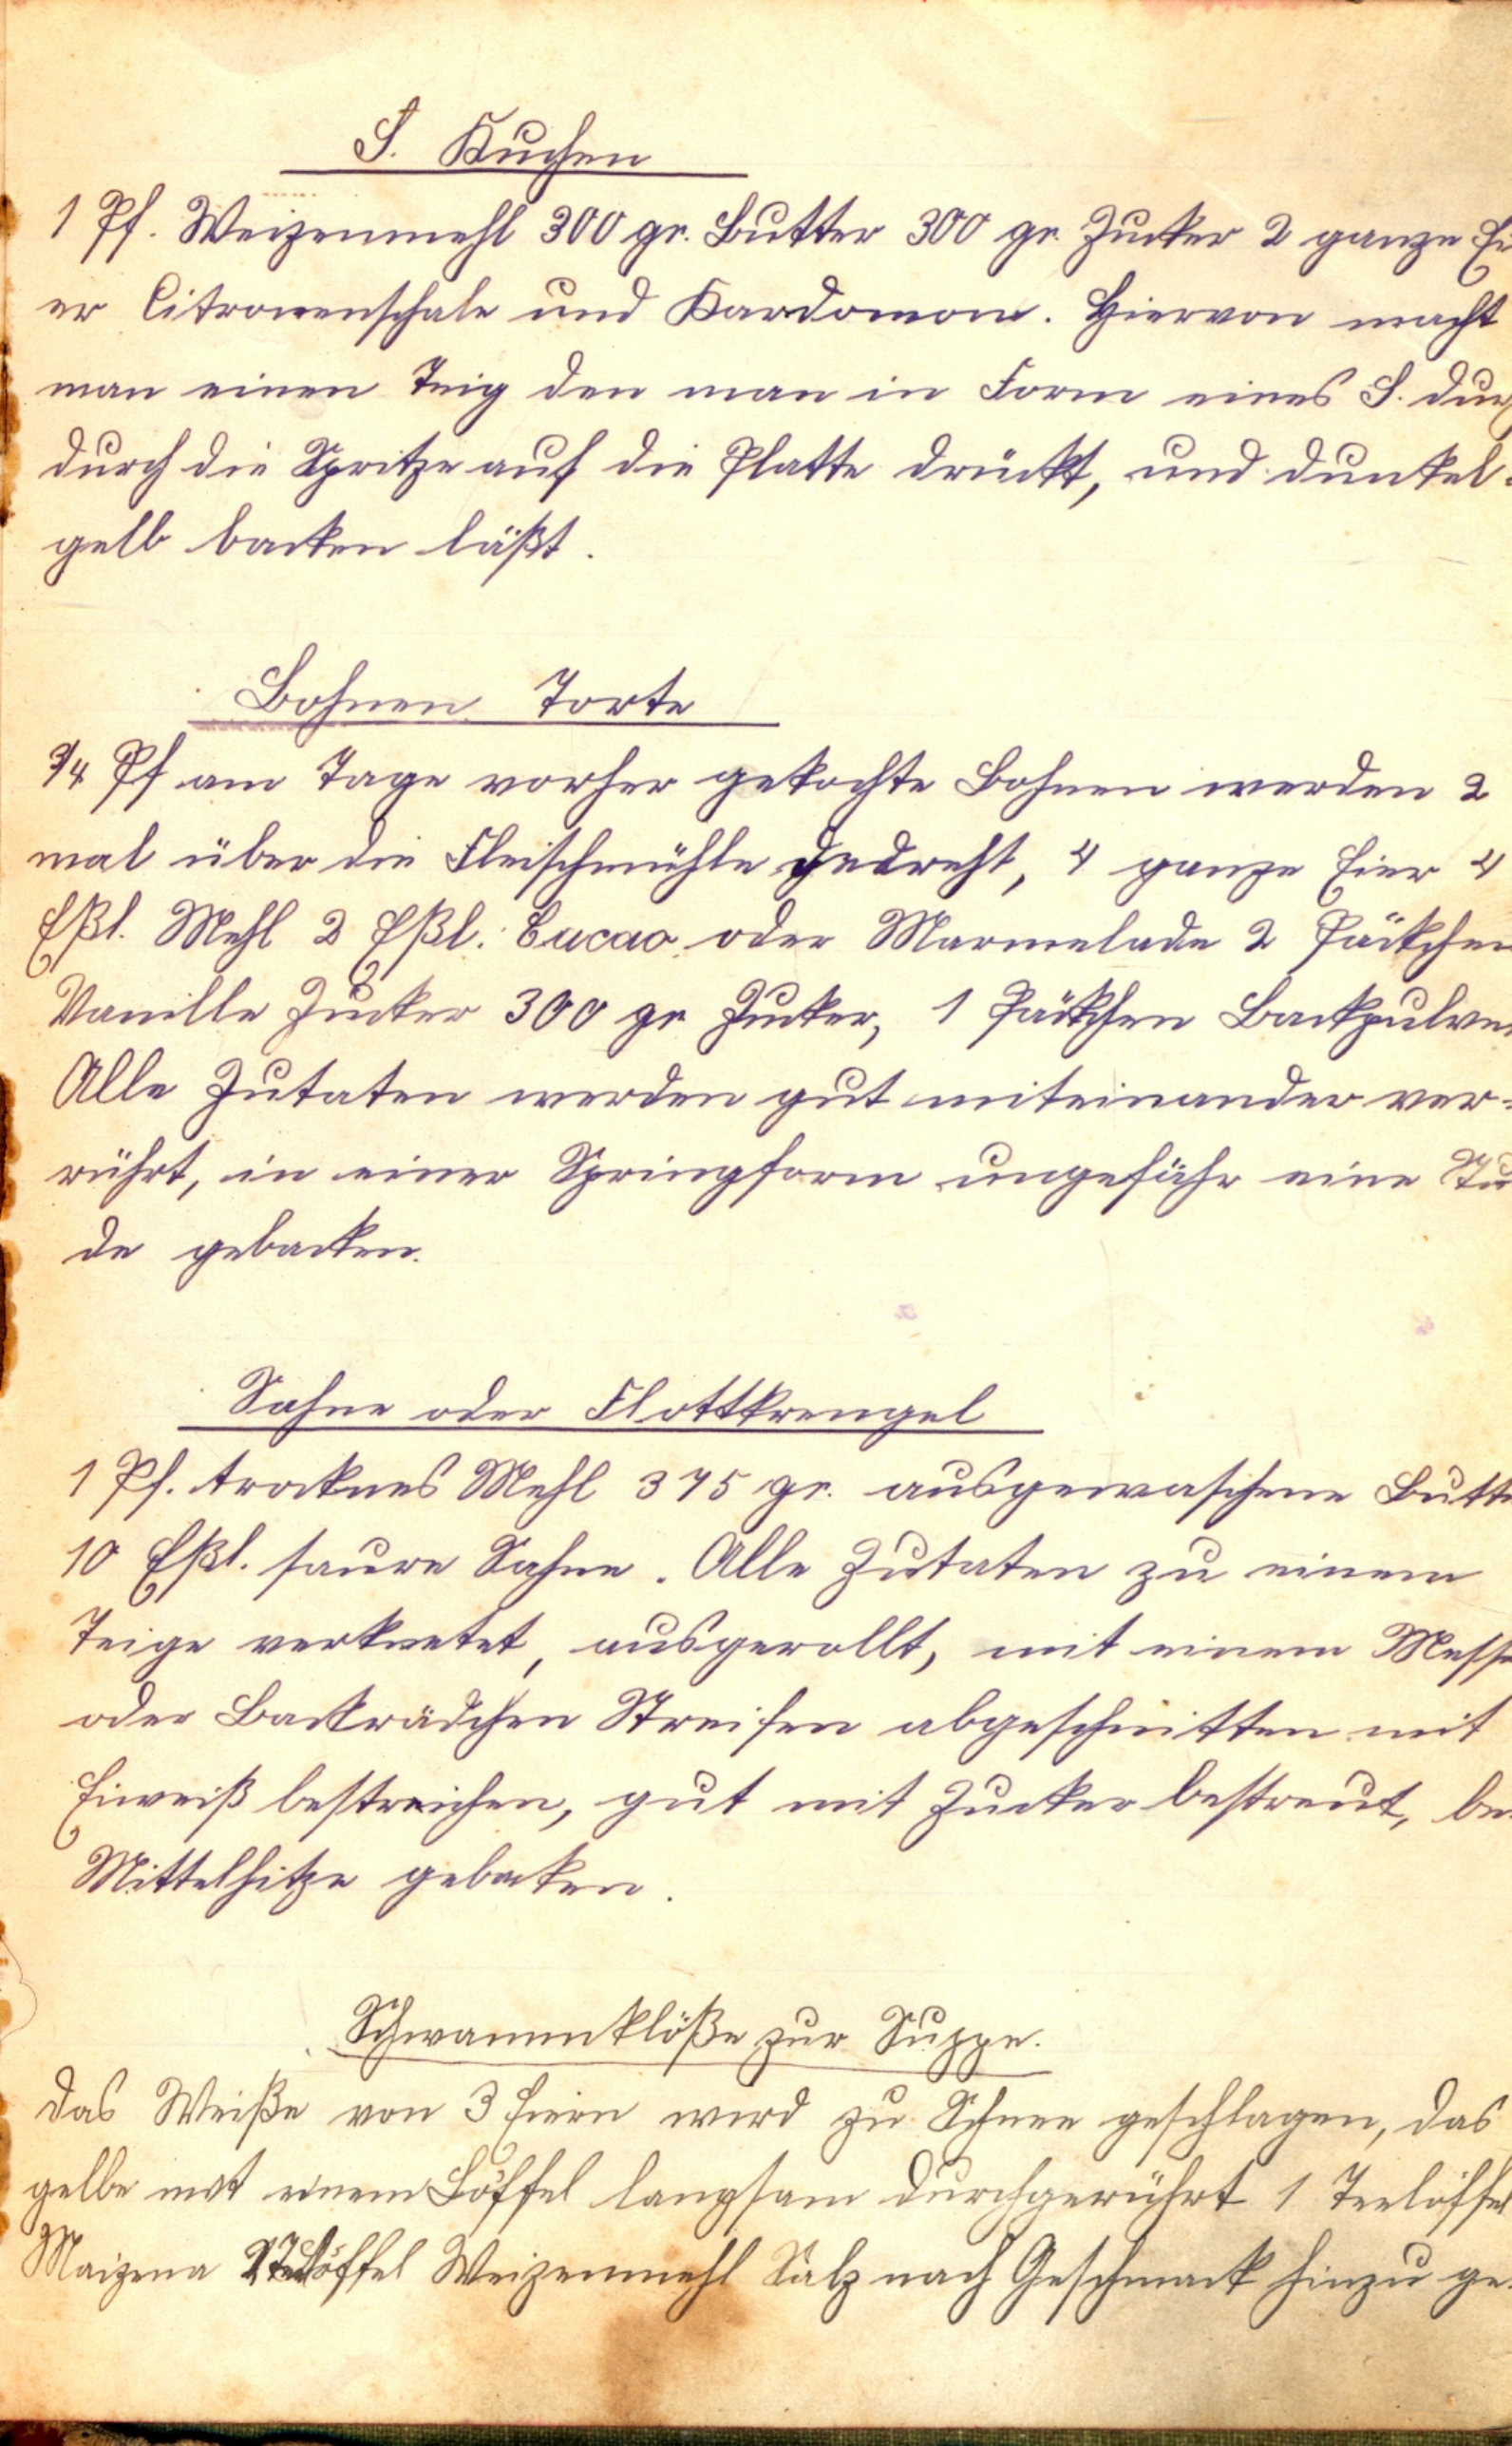 S. Kuchen
1 Pf. Weizenmehl 300 gr. Butter 300 gr. Zucker 2 ganze Ei
er Citronenschale und Kardomom. Hiervon macht
man einen Teig den man in Form eines S. durch
durch die Spritze auf die Platte drückt, und dunkel=
gelb backen läßt.
Bohnen Torte
3/4 Pf am Tage vorher gekochte Bohnen werden 2
mal über die Fleischmühle gedreht, 4 ganze Eier 4
Eßl. Mehl 2 Eßl. Cacao oder Marmelade 2 Päckchen
Vanille Zucker 300 gr Zucker, 1 Päckchen Backpulver
Alle Zutaten werden gut miteinander ver=
rührt, in einer Springform ungefähr eine Stu
de gebacken.
Sahne oder Flottkrengel
1 Pf. trocknes Mehl 375 gr. ausgewaschene Butte
10 Eßl. saure Sahne. Alle Zutaten zu einem
Teige verknetet, ausgerollt, mit einem Messe
oder Backrädchen Streifen abgeschnitten mit
Eiweiß bestreichen, gut mit Zucker bestreut, be
Mittelhitze gebacken.
Schwammklöße zur Suppe.
Das Weiße von 3 Eiern wird zu Schnee geschlagen, das
gelbe mit einem Löffel langsam durchgerührt 1 Teelöffel
Maizena 2 Teelöffel Weizenmehl Salz nach Geschmack hinzu ge